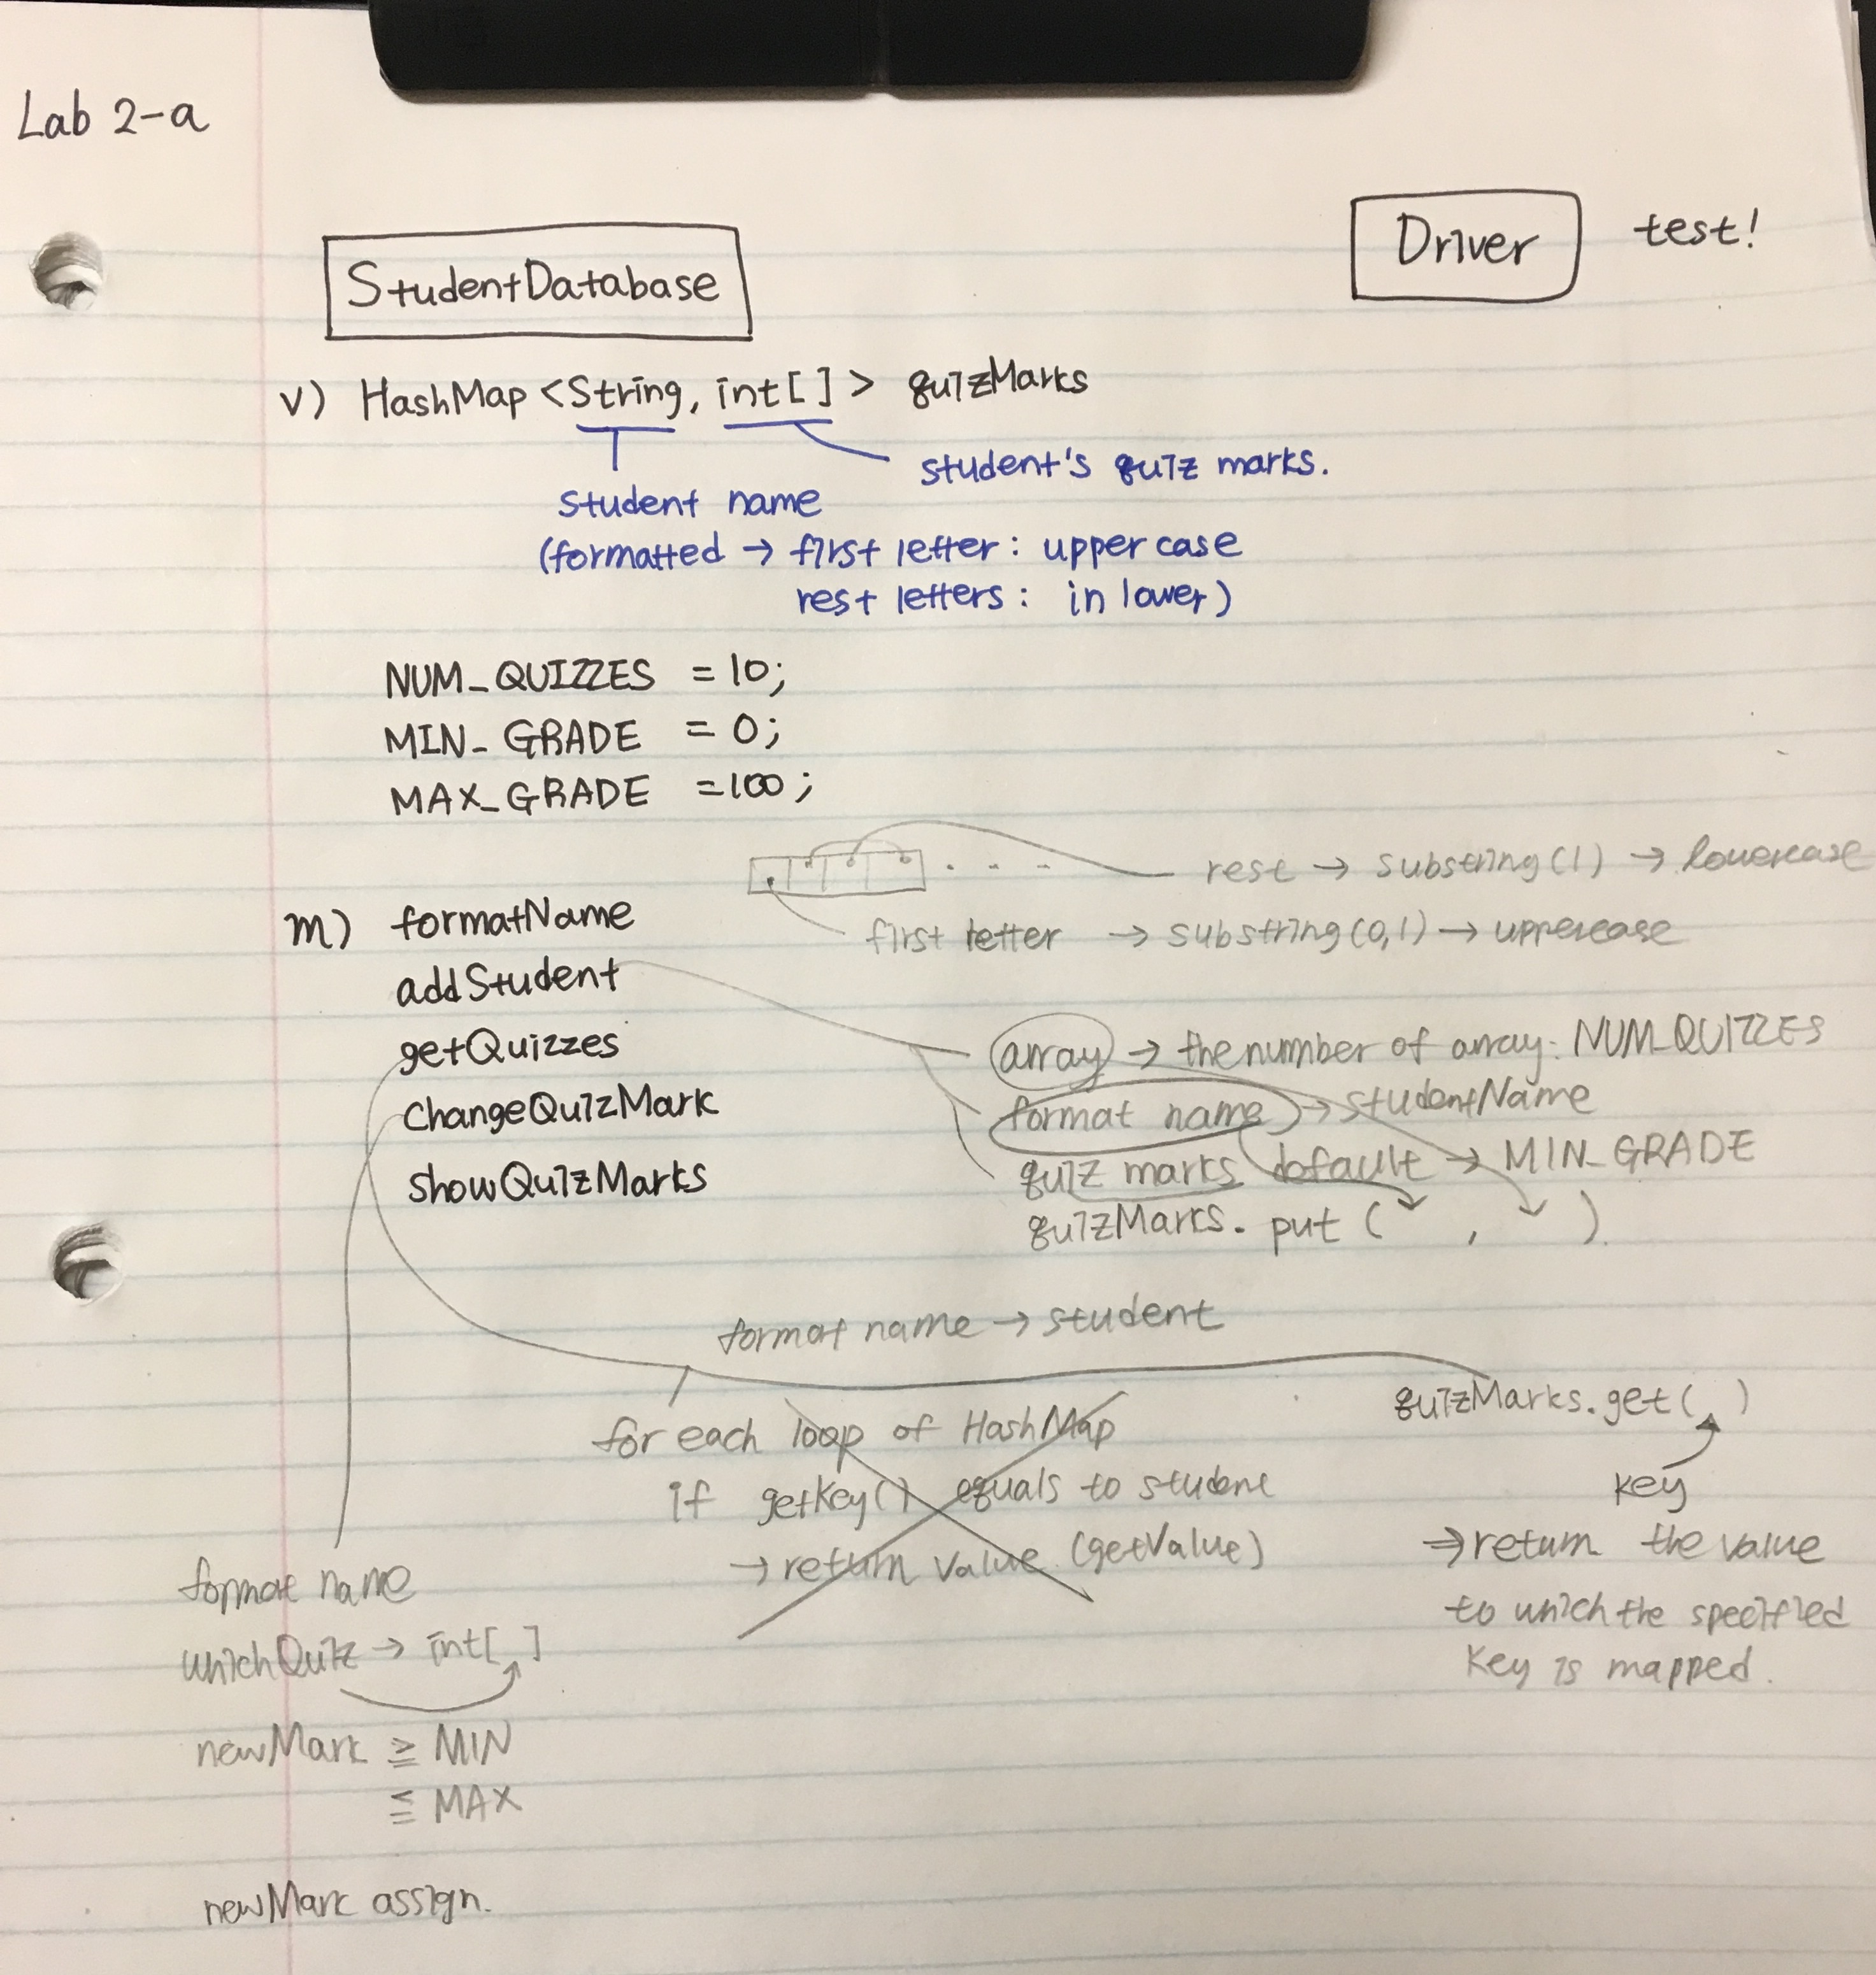 Lab 2-a
StudentDatabase
Driver
test!
v) HashMap <String, int[ ]> quizMarks
student's quiz marks.
student name
(formatted → first letter: upper case
rest letters: in lower)
NUM_QUIZZES = 10;
MIN_GRADE = 0;
MAX_GRADE =100;
rest → substring(1) → lowercase
first letter → substring(0,1) → uppercase
m) formatName
addStudent
getQuizzes
changeQuizMark
showQuizMarks
array → the number of array: NUM_QUIZZES
format name → studentName
quiz marks default → MIN_GRADE
quizMarks. put ( , ).
format name → student
for each loop of HashMap
if getKey() equals to student
→ return value (getValue)
quizMarks.get( )
key
⇒ return the value
to which the specified
key is mapped.
format name
whichQuiz → int[ ]
newMark ≧ MIN
≦ MAX
newMark assign.